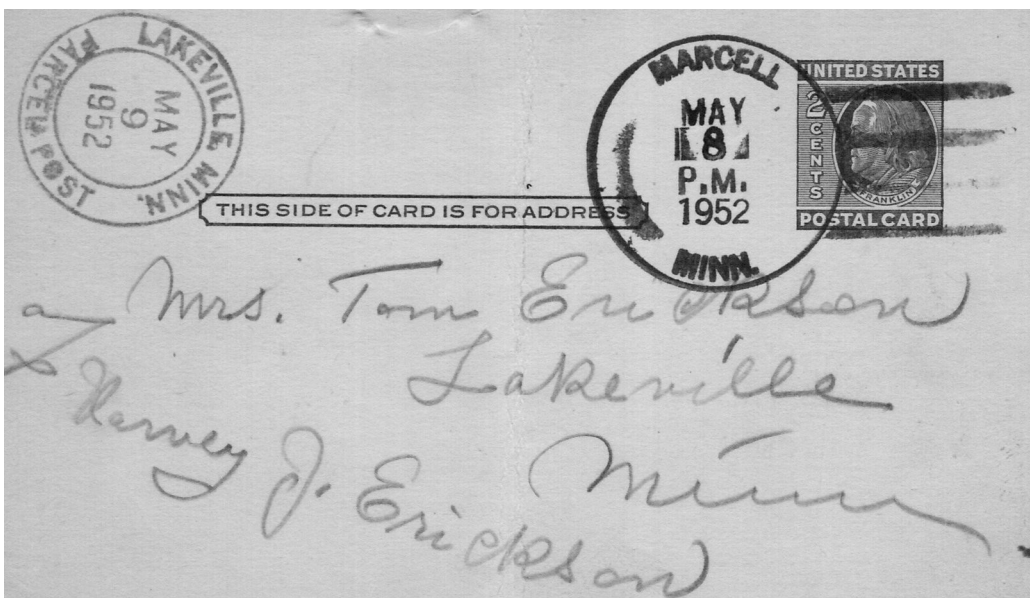 LAKEVILLE MINN.
MAY
9
1952
PARCEL POST
MARCELL
MAY
8
P.M.
1952
MINN.
UNITED STATES
2 CENTS
FRANKLIN
POSTAL CARD
THIS SIDE OF CARD IS FOR ADDRESS
Mrs. Tom Erickson
Lakeville
Minn
Harvey
J. Erickson